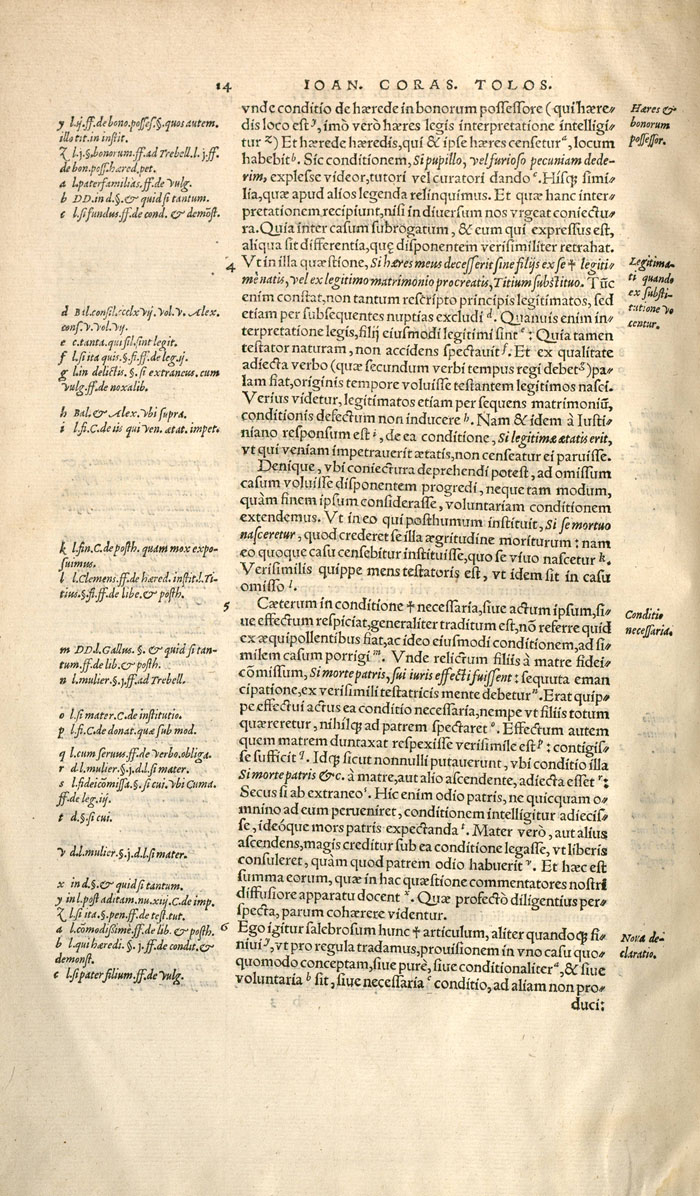 14 IOAN. CORAS. TOLOS.
vnde conditio de hærede in bonorum possessore (qui hære⸗
dis loco est y, imò verò hæres legis interpretatione intelligi⸗
tur z) Et hærede hæredis, qui & ipse hæres censetur a, locum
habebit b. Sic conditionem, Si pupillo, vel furioso pecuniam dede⸗
rim, explesse videor, tutori vel curatori dando c. Hisq́; simi⸗
lia, quæ apud alios legenda relinquimus. Et quæ hanc inter⸗
pretationem recipiunt, nisi in diuersum nos vrgeat coniectu⸗
ra. Quia inter casum subrogatum, & eum qui expressus est,
aliqua sit differentia, quę disponentem verisimiliter retrahat.
4 Vt in illa quæstione, Si hæres meus decesserit sine filijs ex se † legiti⸗
mè natis, vel ex legitimo matrimonio procreatis, Titium substituo. Tūc
enim constat, non tantum rescripto principis legitimatos, sed
etiam per subsequentes nuptias excludi d. Quanuis enim in⸗
terpretatione legis, filij eiusmodi legitimi sint e: Quia tamen
testator naturam, non accidens spectauit f. Et ex qualitate
adiecta verbo (quæ secundum verbi tempus regi debet g) pa⸗
lam fiat, originis tempore voluisse testantem legitimos nasci.
Verius videtur, legitimatos etiam per sequens matrimoniū,
conditionis defectum non inducere h. Nam & idem à Iusti⸗
niano responsum est i, de ea conditione, Si legitimæ ætatis erit,
vt qui veniam impetrauerit ætatis, non censeatur ei paruisse.
Denique, vbi coniectura deprehendi potest, ad omissum
casum voluisse disponentem progredi, neque tam modum,
quàm finem ipsum considerasse, voluntariam conditionem
extendemus. Vt in eo qui posthumum instituit, Si se mortuo
nasceretur, quod crederet se illa ægritudine moriturum: nam
eo quoque casu censebitur instituisse, quo se viuo nascetur k.
Verisimilis quippe mens testatoris est, vt idem sit in casu
omisso l.
5 Cæterum in conditione † necessaria, siue actum ipsum, si⸗
ue effectum respiciat, generaliter traditum est, nō referre quid
ex æquipollentibus fiat, ac ideo eiusmodi conditionem, ad si⸗
milem casum porrigi m. Vnde relictum filiis à matre fidei⸗
cōmissum, Si mortе patris, sui iuris effecti fuissent: sequuta eman
cipatione, ex verisimili testatricis mente debetur n. Erat quip⸗
pe effectui actus ea conditio necessaria, nempe vt filiis totum
quæreretur, nihilq́; ad patrem spectaret o. Effectum autem
quem matrem duntaxat respexisse verisimile est p: contigis⸗
se sufficit q. Idq́; sicut nonnulli putauerunt, vbi conditio illa
Si morte patris &c. à matre, aut alio ascendente, adiecta esset r:
Secus si ab extraneo s. Hic enim odio patris, ne quicquam o⸗
mnino ad eum perueniret, conditionem intelligitur adiecis⸗
se, ideóque mors patris expectanda t. Mater verò, aut alius
ascendens, magis creditur sub ea conditione legasse, vt liberis
consuleret, quàm quod patrem odio habuerit v. Et hæc est
summa eorum, quæ in hac quæstione commentatores nostri
diffusiore apparatu docent x. Quæ profectò diligentius per⸗
specta, parum cohærere videntur.
6 Ego igitur salebrosum hunc † articulum, aliter quandoq́; fi⸗
niui y, vt pro regula tradamus, prouisionem in vno casu quo⸗
quomodo conceptam, siue purè, siue conditionaliter a, & siue
voluntaria b sit, siue necessaria c conditio, ad aliam non pro⸗
duci:
y l.ij.ff.de bono.posses.§.quos autem.
illo tit.in instit.
z l.j.§.bonorum.ff.ad Trebell.l.j.ff.
de bon.poss.hæred.pet.
a l.paterfamilias.ff.de vulg.
b DD.in d.§.& quid si tantum.
c l.si fundus.ff.de cond. & demōst.
d Bal.consil.cclxvij.vol.v. Alex.
cons.v.vol.vij.
e c.tanta.qui fil.sint legit.
f l.si ita quis.§.fi.ff.de leg.ij.
g l.in delictis.§.si extraneus.cum
vulg.ff.de noxalib.
h Bal.& Alex.vbi supra.
i l.fi.C.de iis qui ven.ætat.impet.
k l.fin.C.de posth. quam mox expo⸗
suimus.
l l.Clemens.ff.de hæred.instit.l.Ti⸗
tius.§.fi.ff.de libe.& posth.
m DD.l.Gallus.§.& quid si tan⸗
tum.ff.de lib.& posth.
n l.mulier.§.j.ff.ad Trebell.
o l.si mater.C.de institutio.
p l.fi.C.de donat.quæ sub mod.
q l.cum seruus.ff.de verbo.obliga.
r d.l.mulier.§.j.d.l.si mater.
s l.fideicomissa.§.si cui.vbi Cuma.
ff.de leg.iij.
t d.§.si cui.
v d.l.mulier.§.j.d.l.si mater.
x in d.§.& quid si tantum.
y in l.post aditam.nu.xiij.C.de imp.
z l.si ita.§.pen.ff.de test.tut.
a l.comodissimè.ff.de lib.& posth.
b l.qui hæredi.§.j.ff.de condit.&
demonst.
c l.si pater filium.ff.de vulg.
Hæres &
bonorum
possessor.
Legitima⸗
ti quando
ex substi⸗
tutione vo
centur.
Conditio
necessaria.
Noua de⸗
claratio.